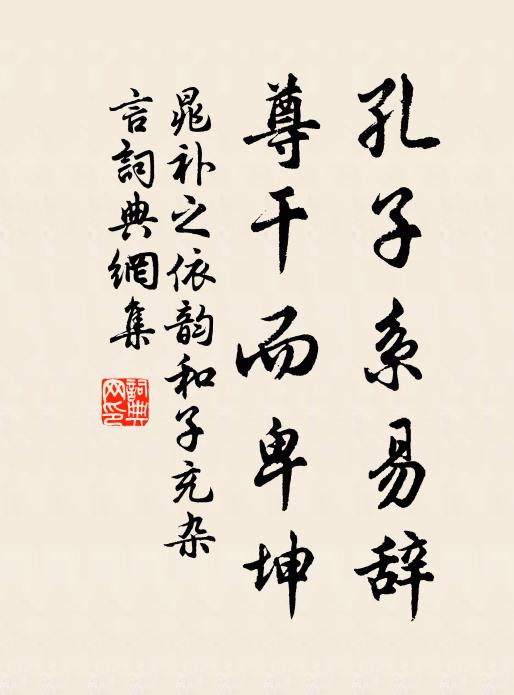 孔子系易辞
尊干而卑坤
晁补之依韵和子充杂
言詞典網集
詞典
网印